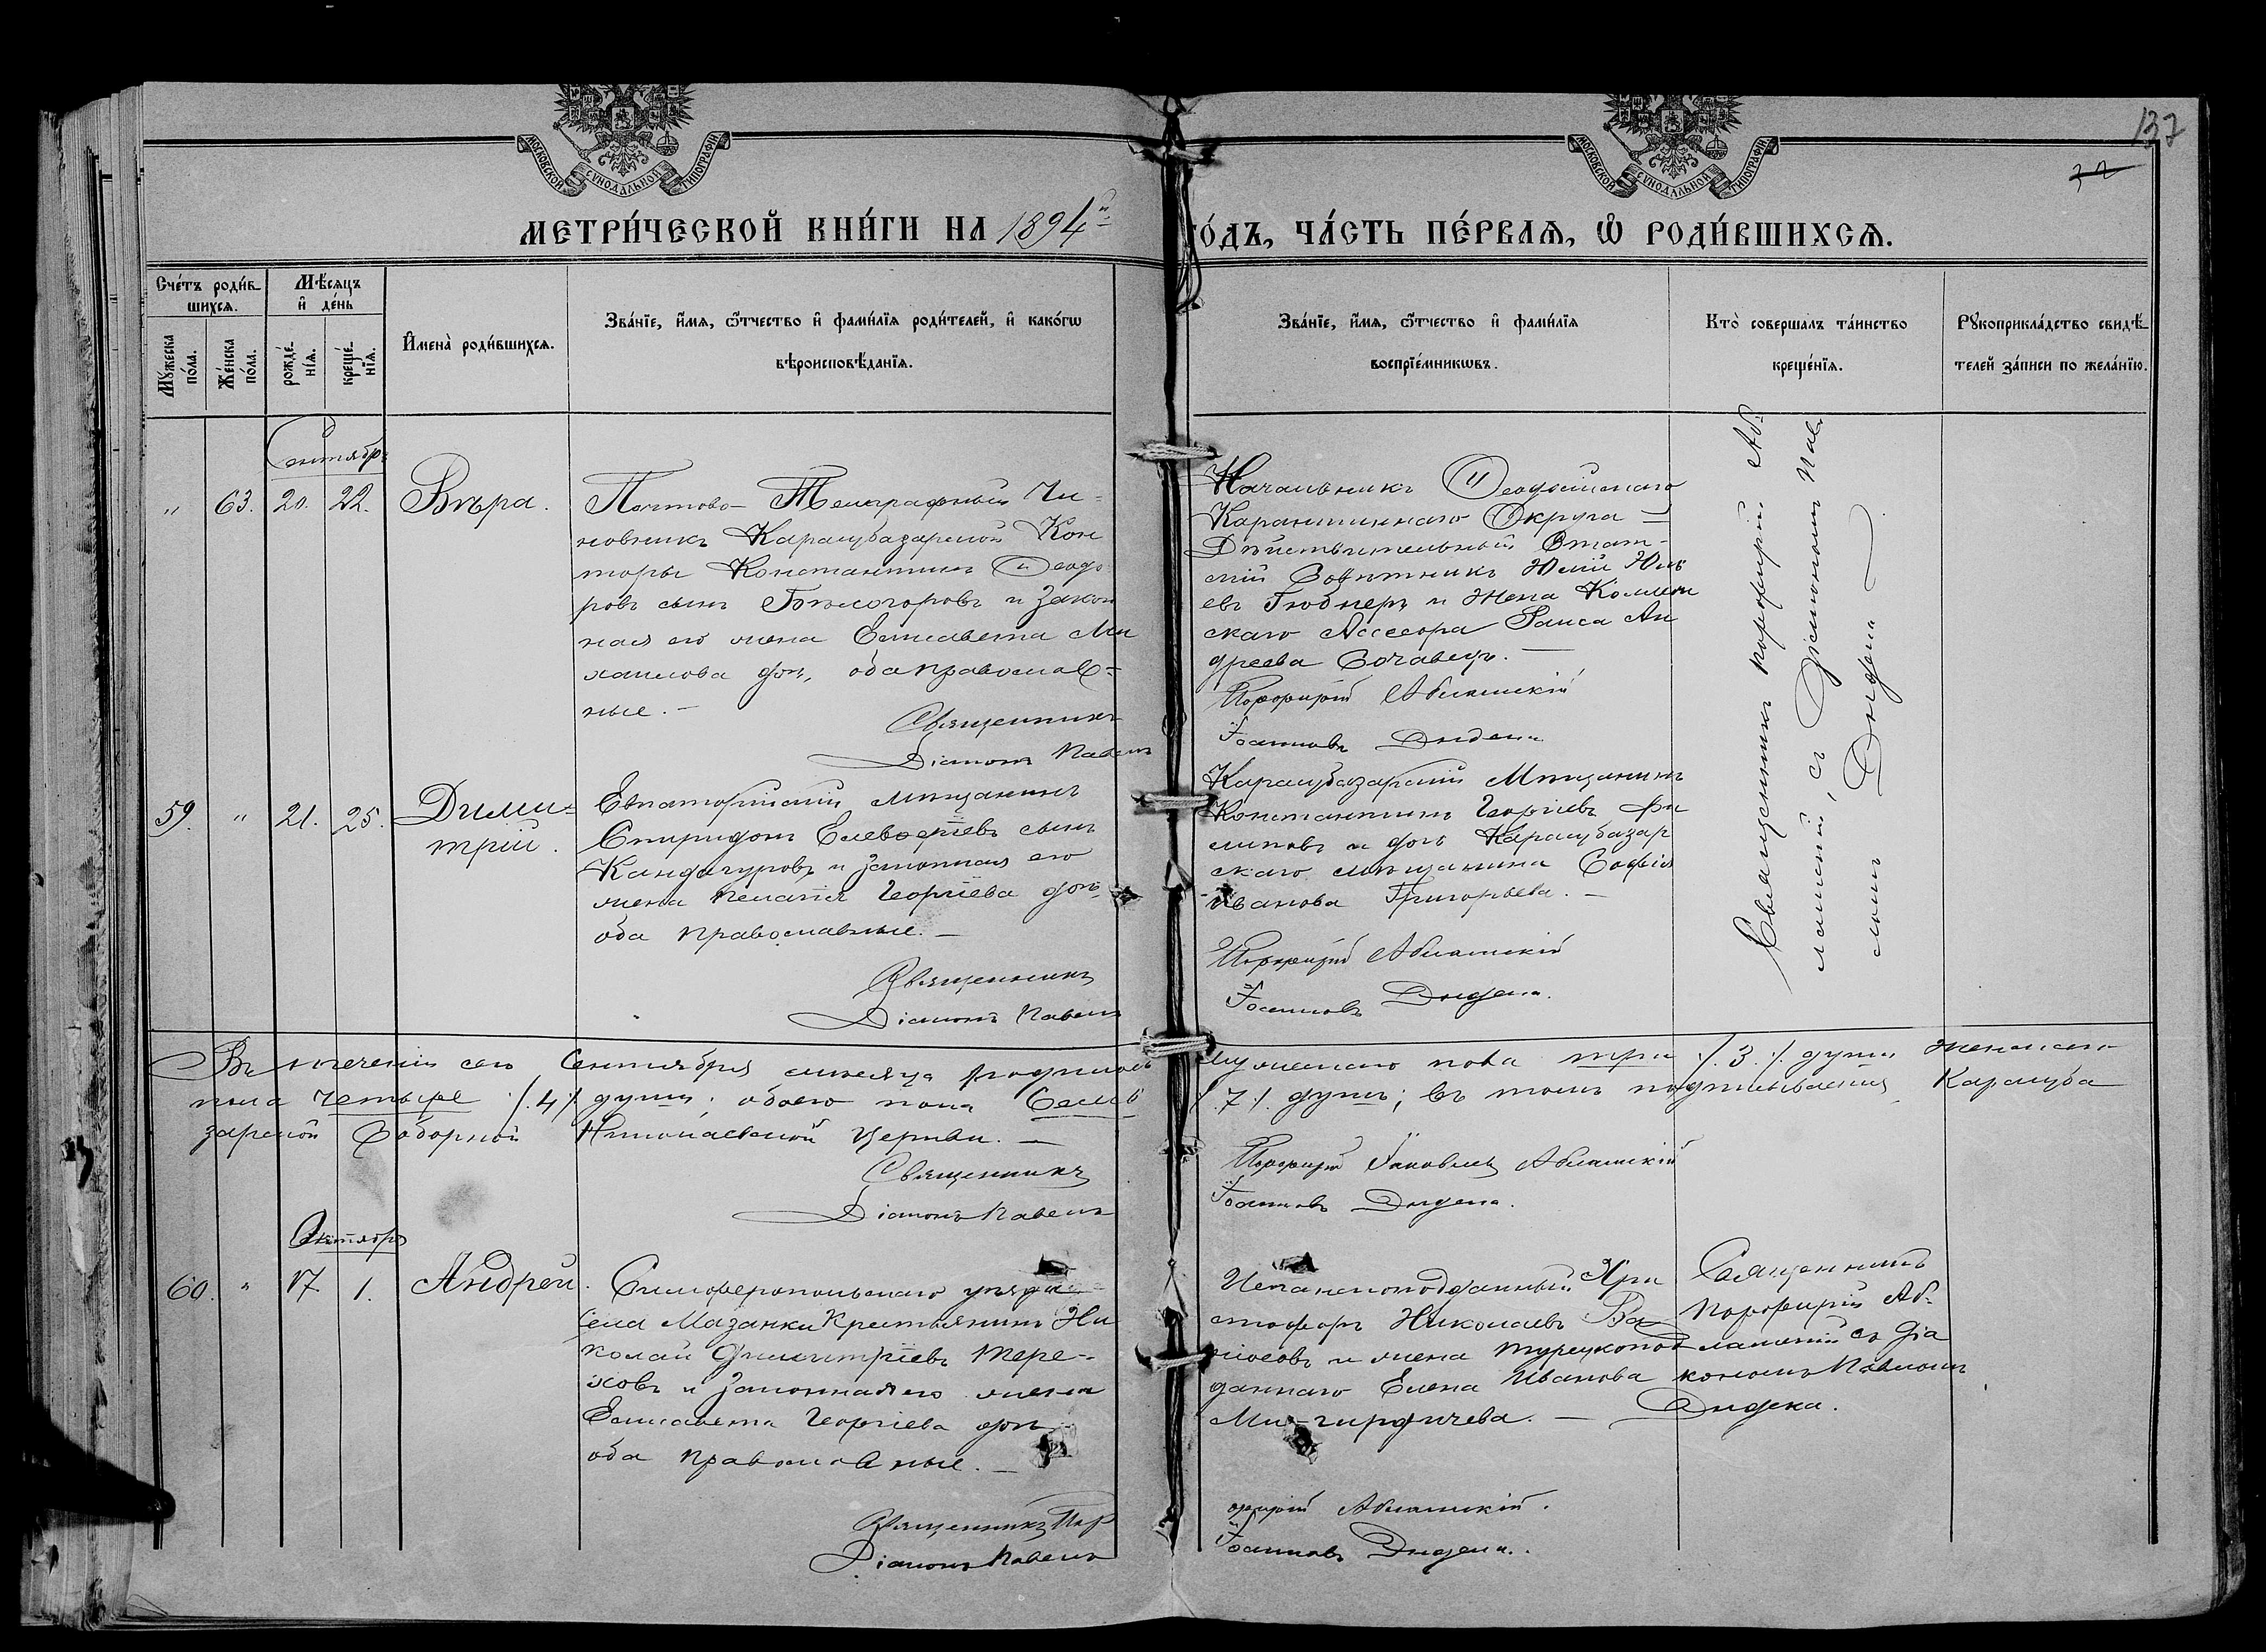 137
МОСКОВСКОЙ СѴНОДАЛЬНОЙ ТИПОГРАФІИ
МОСКОВСКОЙ СѴНОДАЛЬНОЙ ТИПОГРАФІИ
МЕТРИ́ЧЕСКОЙ КНИ́ГИ НА 1894й
ГО́ДЪ, ЧА́СТЬ ПЕ́РВАѦ, Ѡ҆ РОДИ́ВШИХСѦ.
Сче́тъ роди́в-
шихсѧ.
Мꙋ́жеска по́ла.
Же́нска по́ла.
Мѣ́сѧцъ
и҆ де́нь
рожде́-
нїѧ.
креще́-
нїѧ.
И҆мена̀ роди́вшихсѧ.
Зва́нїе, и҆́мѧ, ѻ҆́тчество и҆ фами́лїѧ роди́телей, и҆ како́гѡ
вѣроисповѣ́данїѧ.
Зва́нїе, и҆́мѧ, ѻ҆́тчество и҆ фами́лїѧ
воспрїе́мникѡвъ.
Кто̀ соверша́лъ та́инство
креще́нїѧ.
Рꙋкоприкла́дство свидѣ́-
телей за́писи по жела́нїю.
Сентябрь
" 63. 20. 22. Вѣра.
Почтово-Телеграфный Чи-
новникъ Карасубазарской Кон
торы Константинъ Ѳеодо
ровъ сынъ Бѣлогоровъ и закон
ная его жена Елисавета Ми
хаилова дочь, оба православ-
ные. —
Священникъ
Діаконъ Павелъ
Начальникъ Ѳеодосійскаго
Карантиннаго Округа —
Дѣйствительный Стат-
скій Совѣтникъ Юлій Юль
евъ Гюбнеръ и жена Коллеж
скаго Ассесора Раиса Ан
дреева Сочавецъ. —
Порфирій Абламскій
Іоанновъ Дидека
Священникъ Порфирій Аб-
ламскій, съ Діакономъ Пав-
ломъ Дидека —
59. " 21. 25. Дими-
трій.
Евпаторійскій мѣщанинъ
Спиридонъ Елевферіевъ сынъ
Кандагуровъ и законная его
жена Пелагія Георгіева дочь
оба православные. —
Священникъ
Діаконъ Павелъ
Карасубазарскій Мѣщанинъ
Константинъ Георгіевъ Фи
липовъ и дочь Карасубазар
скаго мѣщанина Софія
Иванова Григорьева. —
Порфирій Абламскій
Іоанновъ Дидека.
Въ теченіи сего Сентября мѣсяца родилось мужескаго пола три /.3./. души женскаго
пола четыре /.4/. души; обоего пола семь /.7./. душъ; въ томъ подписываемся Карасуба
зарской Соборной Николаевской Церкви. —
Священникъ
Діаконъ Павелъ
Порфирій Іаковлевъ Абламскій
Іоанновъ Дидека.
Октябрь
60. " 17. 1. Андрей.
Симферопольскаго уѣзда
села Мазанки Крестьянинъ Ни
колай Димитріевъ Тере-
ховъ и законная его жена
Елисавета Георгіева дочь
оба православные. —
Священникъ Пор
Діаконъ Павелъ
Христофоръ Николаевъ
и жена турецкопод
даннаго Елена Иванова
фирій Абламскій.
Іоанновъ Дидека.
Священникъ
Порфирій Аб-
ламскій съ Діа
кономъ Павломъ
Дидека.